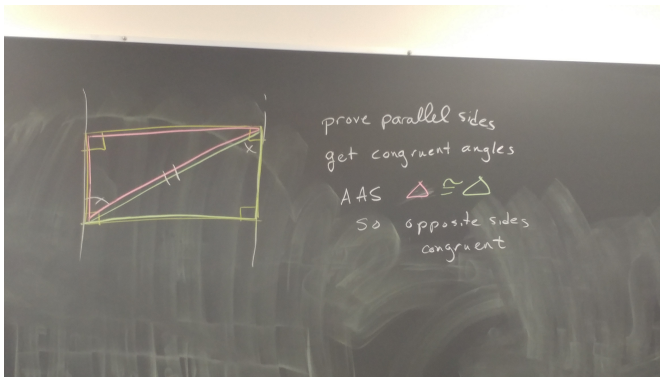 prove parallel sides
get congruent angles
AAS △ ≅ △
so opposite sides
congruent
x